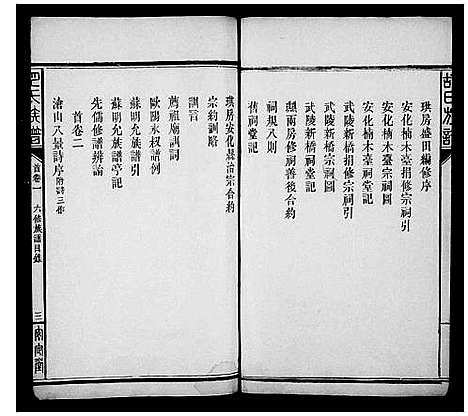 珙房盛田編修序
安化楠木臺捐修宗祠引
安化楠木臺祠堂記
安化楠木臺宗祠圖
武陵新橋捐修宗祠引
武陵新橋宗祠圖
武陵新橋祠堂記
珙興兩房修祠善後合約
祠規八則
舊祠堂記
胡氏族譜
珙房安化裁治宗合約
宗約訓略
訓言
薦祖廟訓詞
歐陽永叔譜例
蘇明允族譜亭記
蘇明允族譜引
先儒修譜辨論
首卷二
滄山八景詩序附詩三作
胡氏族譜
首卷一
六修族譜目錄
三
安定堂